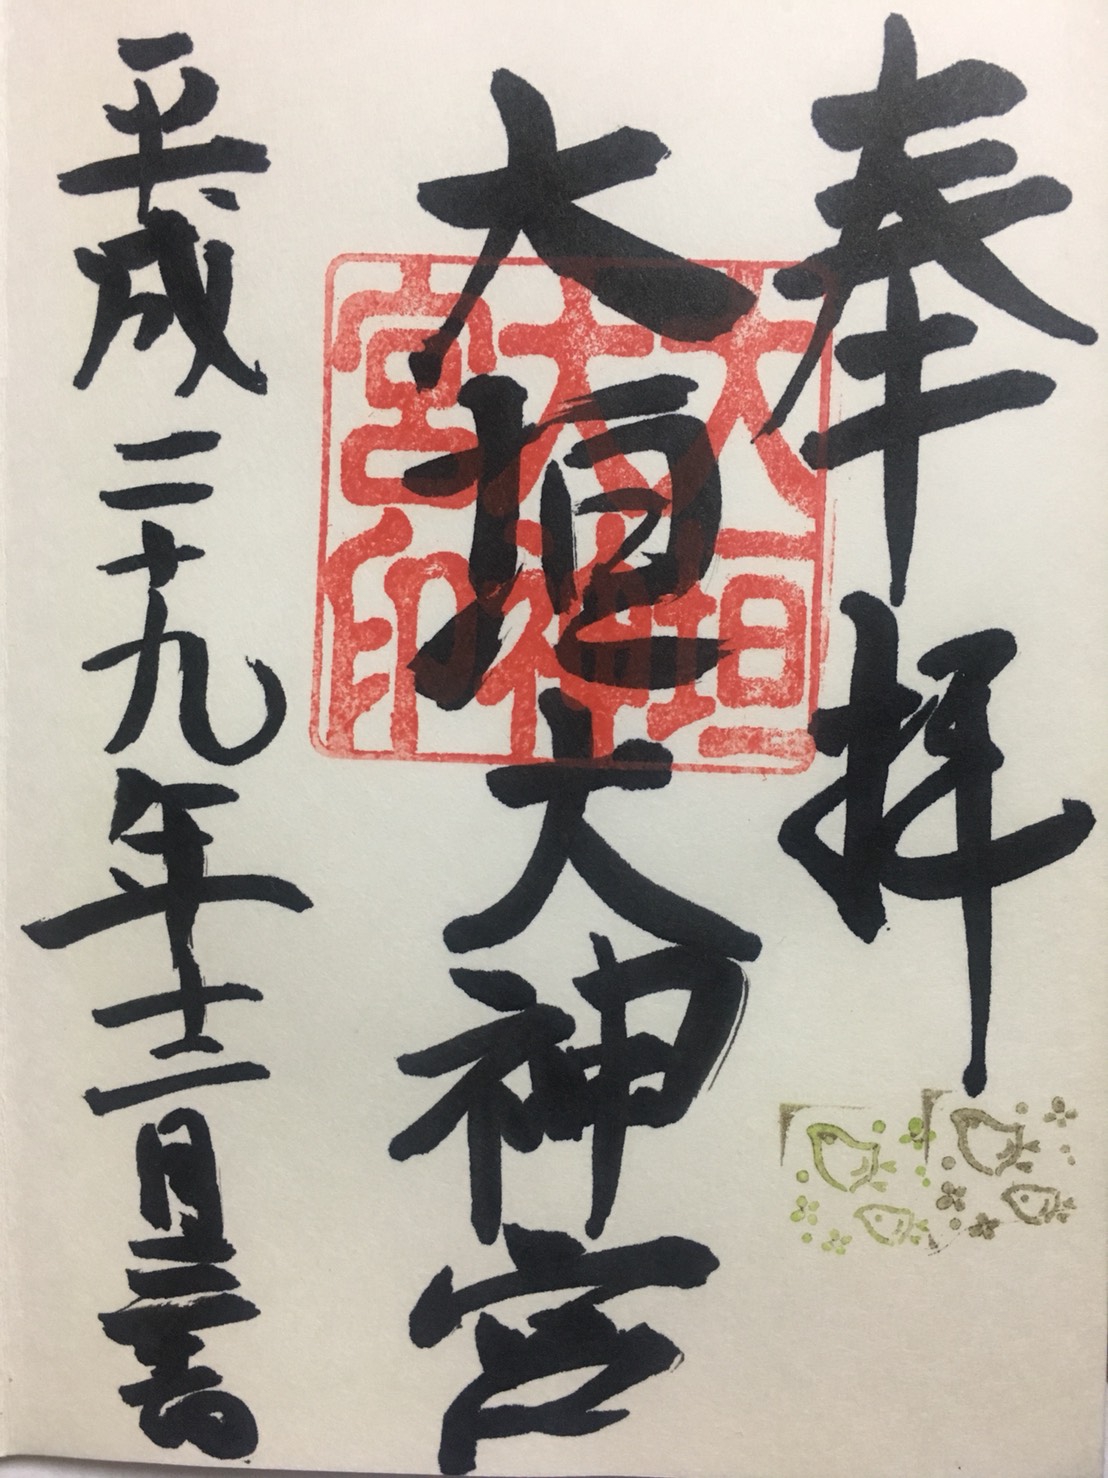 奉拝
大垣大神宮
大垣
大神
宮印
平成二十九年十二月